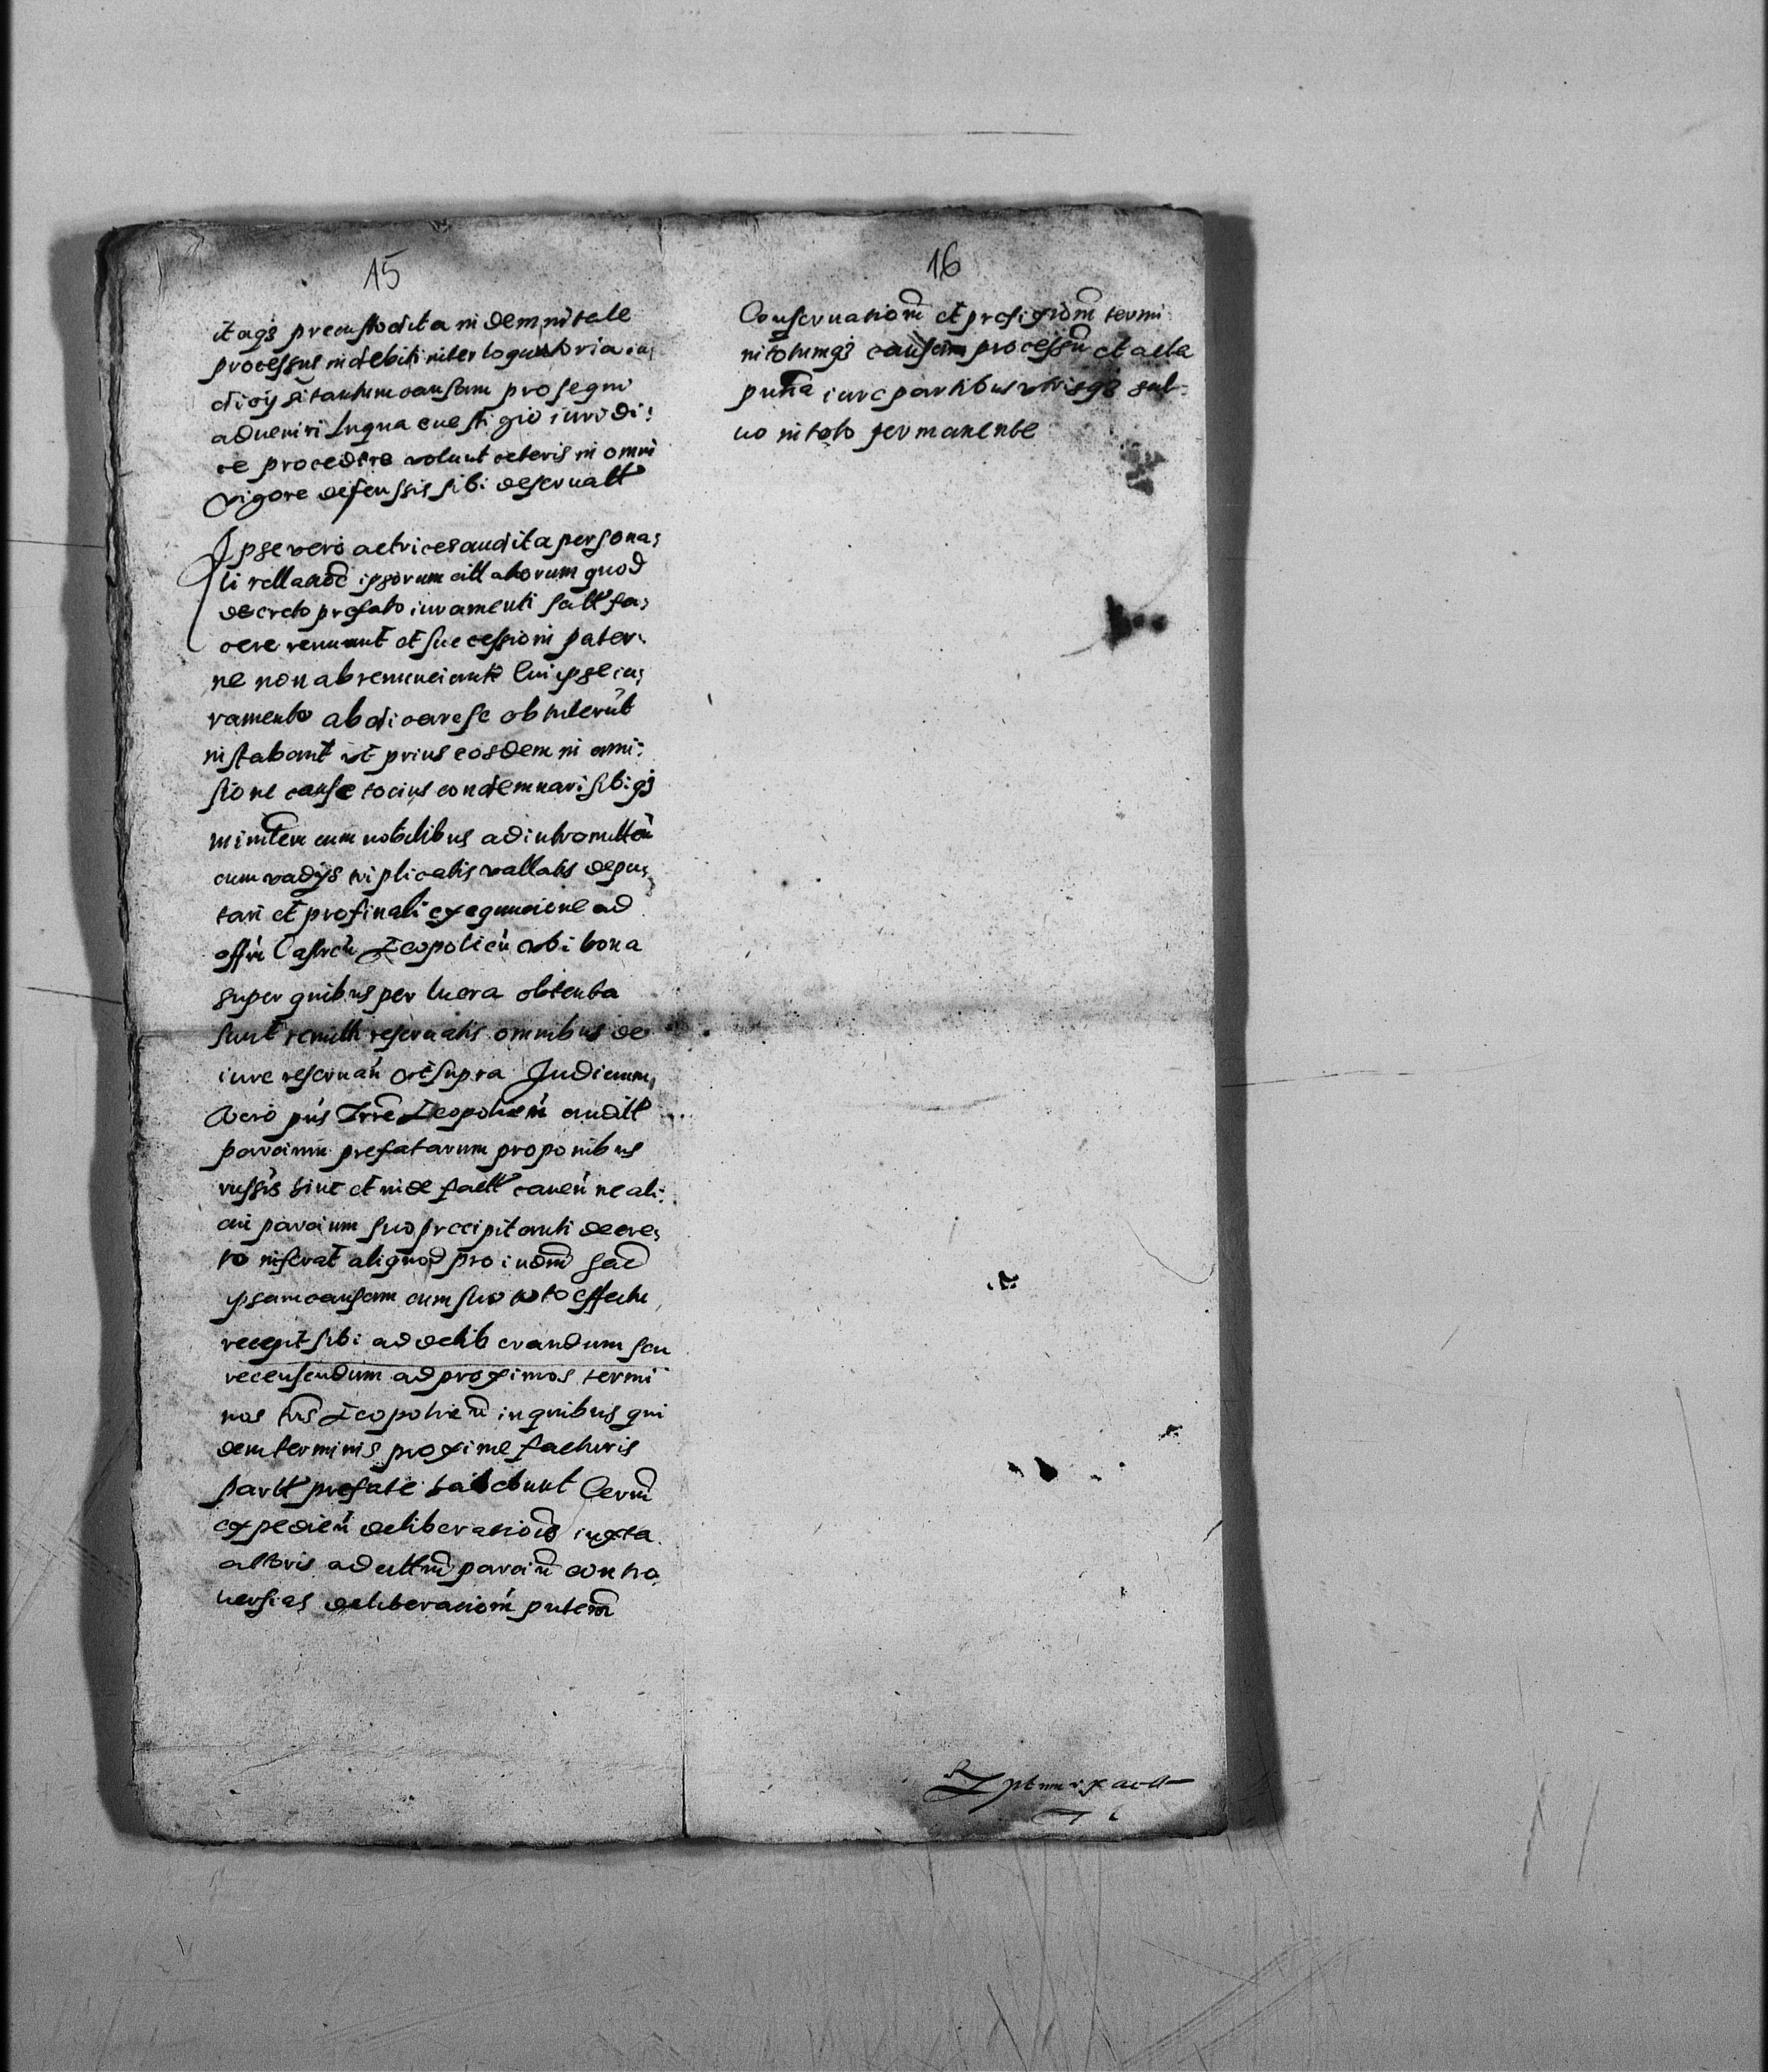 15
itaq3 precustodita indemnitate
processus indebiti interloqutoria iu,
dicij si tantum causam prosequi
ad veniri lugna e vestigio iuridi:
ce procedere volunt ceteris in omni
vigore defenssis sibi deservatt
Ipse vero actrices audita persona,
li rellacioe ipsorum cittatorum quod
decreto prefato iuramenti satt fa,
cere renuunt et successioni pater,
ne non abrenunciant Cui ipse iu,
ramento abdicare se obtulerut
instabant ut prius eosdem in ami:
sione cause tocius condemnari sibiq3
ministem cum nobilibus ad intromitten
cum vadijs triplicatis vallatis depu,
tari et pro finali exequucione ad
offm Castren Leopolien ubi bona
super quibus per lucra obtenta
sunt remitti reservatis omnibus de
iure reservan ut supra Judicium,
vero pns Trre Leopolien auditt
parcium prefatarum proponibus
russis hinc et inde factt caven ne ali:
cui parcium suo precipitanti decre,
to inferat aliquod proiudm fac
ipsam causam cum suo toto effectu
recepit sibi ad deliberandum seu
recensendum ad proximos termi
nos trris Leopolien in quibus qui
dem terminis proxime facturis
partt prefate habebunt Cerm
expedien deliberaciois iuxta
actoris ad cittm parcium contro,
versias deliberaciom putem
16
Conservationm et prefixiom termi
ni totumq3 causam processu et acta
pntia iure partibus utrisq3 sal:
vo in toto permanente